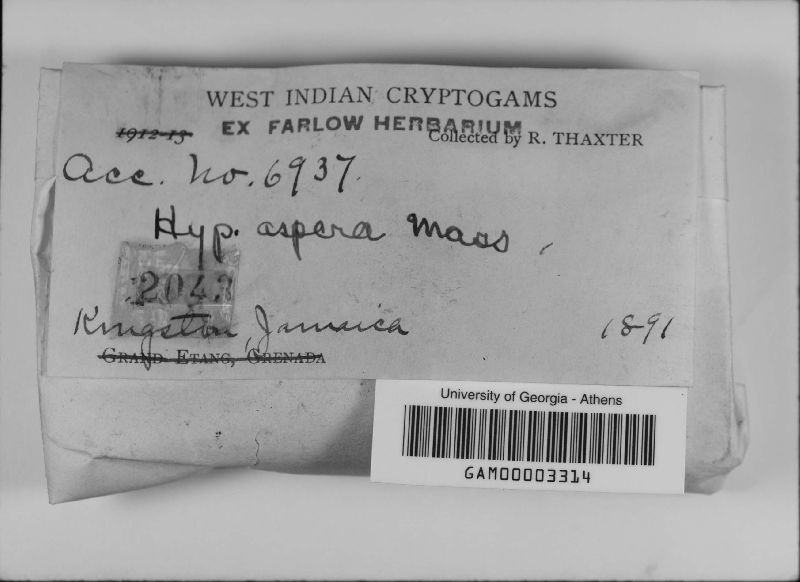 WEST INDIAN CRYPTOGAMS
1912-13 EX FARLOW HERBARIUM
Collected by R. THAXTER
Acc. No. 6937.
Hyp. aspera Mass
2043
Kingston, Jamaica 1891
GRAND ETANG, GRENADA
University of Georgia - Athens
GAM00003314